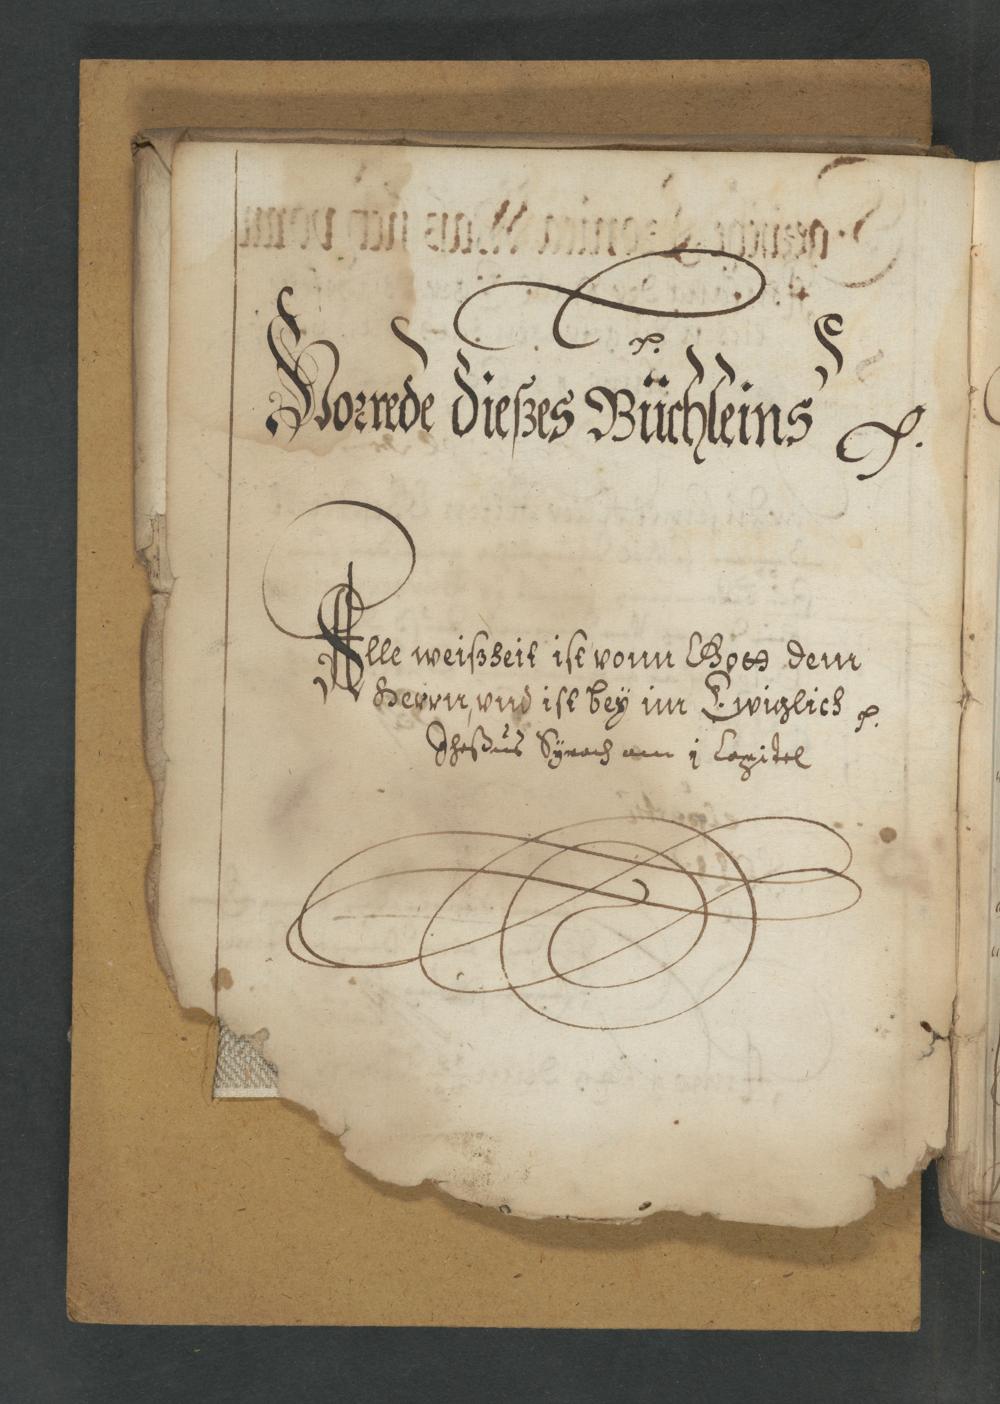 Vorrede dießes Büchleins
Alle weißheit ist vonn Gott dem
Herrn, vnd ist bey im Ewiglich
Jheßus Sÿrach am j Capitel